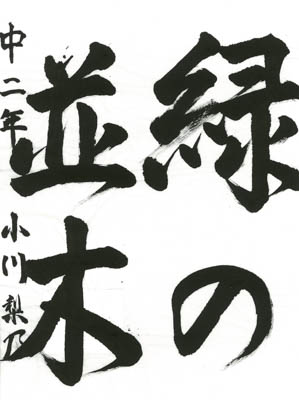 緑の
並木
中二年 小川梨乃